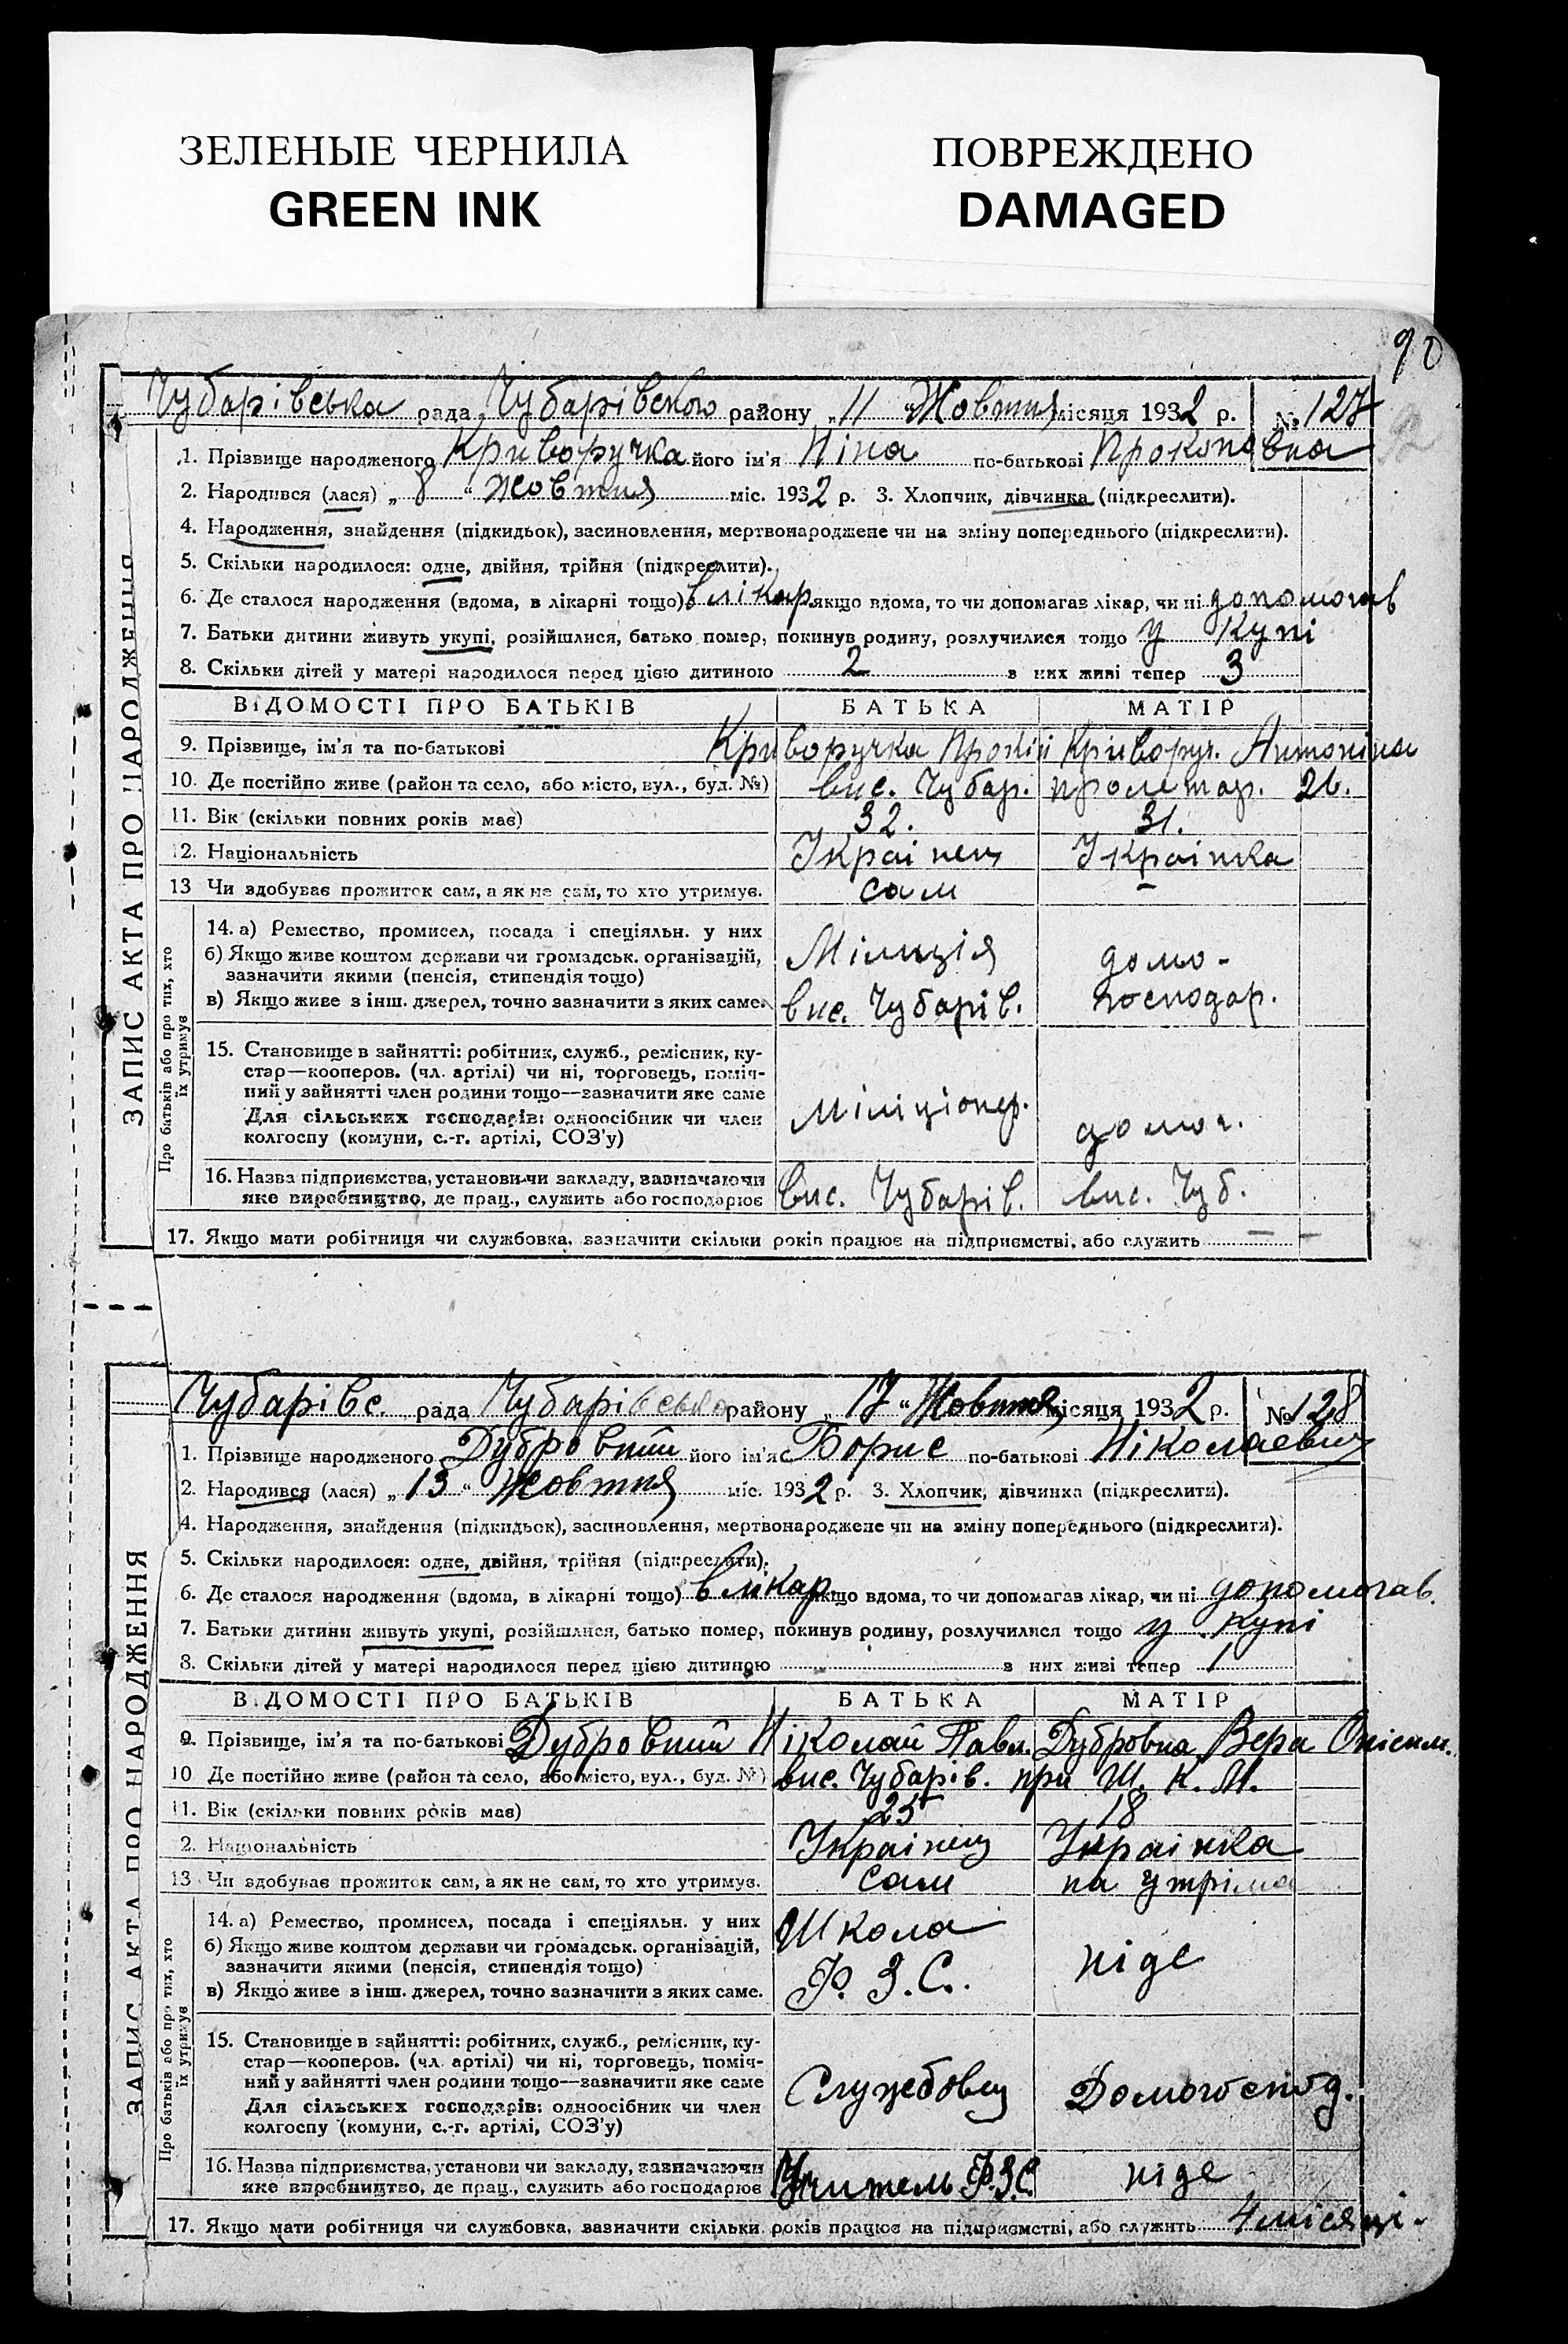 ЗЕЛЕНЫЕ ЧЕРНИЛА
GREEN INK
ПОВРЕЖДЕНО
DAMAGED
90
92
ЗАПИС АКТА ПРО НАРОДЖЕННЯ
Чубарівська рада Чубарівского району „11“ Жовтня місяця 1932 р. № 127
1. Прізвище народженого Криворучка його ім'я Ніна по-батькові Прокоповна
2. Народився (лася) „8“ Жовтня міс. 1932 р. 3. Хлопчик, дівчинка (підкреслити).
4. Народження, знайдення (підкидьок), засиновлення, мертвонароджене чи на зміну попереднього (підкреслити).
5. Скільки народилося: одне, двійня, трійня (підкреслити).
6. Де сталося народження (вдома, в лікарні тощо) в лікар. якщо вдома, то чи допомагав лікар, чи ні допомогав
7. Батьки дитини живуть укупі, розійшлися, батько помер, покинув родину, розлучилися тощо у купі
8. Скільки дітей у матері народилося перед цією дитиною 2 з них живі тепер 3
ВІДОМОСТІ ПРО БАТЬКІВ БАТЬКА МАТІР
9. Прізвище, ім'я та по-батькові Криворучка Прокіп Криворуч. Антоніна
10. Де постійно живе (район та село, або місто, вул., буд. №) вис. Чубар. пролетар. 26.
11. Вік (скільки повних років має) 32. 31.
12. Національність Українец Українка
13 Чи здобуває прожиток сам, а як не сам, то хто утримує. сам –
Про батьків або про тих, хто їх утримує
14. а) Ремество, промисел, посада і спеціяльн. у них
б) Якщо живе коштом держави чи громадськ. організацій, зазначити якими (пенсія, стипендія тощо) Міліція домо-
в) Якщо живе з інш. джерел, точно зазначити з яких саме. вис. Чубарів. господар.
15. Становище в зайнятті: робітник, служб., ремісник, ку-
стар—кооперов. (чл. артілі) чи ні, торговець, поміч-
ний у зайнятті член родини тощо—зазначити яке саме
Для сільських господарів: одноосібник чи член Міліціонер. домог.
колгоспу (комуни, с.-г. артілі, СОЗ'у)
16. Назва підприємства, установи чи закладу, зазначаючи
яке виробництво, де прац., служить або господарює вис. Чубарів. вис. Чуб.
17. Якщо мати робітниця чи службовка, зазначити скільки років працює на підприємстві, або служить — –
ЗАПИС АКТА ПРО НАРОДЖЕННЯ
Чубарівс. рада Чубарівсько району „17“ Жовтня місяця 1932 р. № 128
1. Прізвище народженого Дубровний його ім'я Борис по-батькові Ніколаевич
2. Народився (лася) „13“ Жовтня міс. 1932 р. 3. Хлопчик, дівчинка (підкреслити).
4. Народження, знайдення (підкидьок), засиновлення, мертвонароджене чи на зміну попереднього (підкреслити).
5. Скільки народилося: одне, двійня, трійня (підкреслити).
6. Де сталося народження (вдома, в лікарні тощо) в лікар. якщо вдома, то чи допомагав лікар, чи ні допомогав.
7. Батьки дитини живуть укупі, розійшлися, батько помер, покинув родину, розлучилися тощо у купі
8. Скільки дітей у матері народилося перед цією дитиною з них живі тепер 1
ВІДОМОСТІ ПРО БАТЬКІВ БАТЬКА МАТІР
9. Прізвище, ім'я та по-батькові Дубровний Ніколай Павл. Дубровна Вера
10 Де постійно живе (район та село, або місто, вул., буд. №) вис. Чубарів. при Ш. К. М.
11. Вік (скільки повних років має) 25 18
2. Національність Українец Українка
13 Чи здобуває прожиток сам, а як не сам, то хто утримує. сам на утріма
Про батьків або про тих, хто їх утримує
14. а) Ремество, промисел, посада і спеціяльн. у них Школа
б) Якщо живе коштом держави чи громадськ. організацій,
зазначити якими (пенсія, стипендія тощо) Ф. З. С. ніде
в) Якщо живе з інш. джерел, точно зазначити з яких саме.
15. Становище в зайнятті: робітник, служб., ремісник, ку-
стар—кооперов. (чл. артілі) чи ні, торговець, поміч-
ний у зайнятті член родини тощо—зазначити яке саме Службовец Домогоспод.
Для сільських господарів: одноосібник чи член
колгоспу (комуни, с.-г. артілі, СОЗ'у)
16. Назва підприємства, установи чи закладу, зазначаючи
яке виробництво, де прац., служить або господарює Учитель Ф.З.С. ніде
17. Якщо мати робітниця чи службовка, зазначити скільки років працює на підприємстві, або служить 4 місяці.